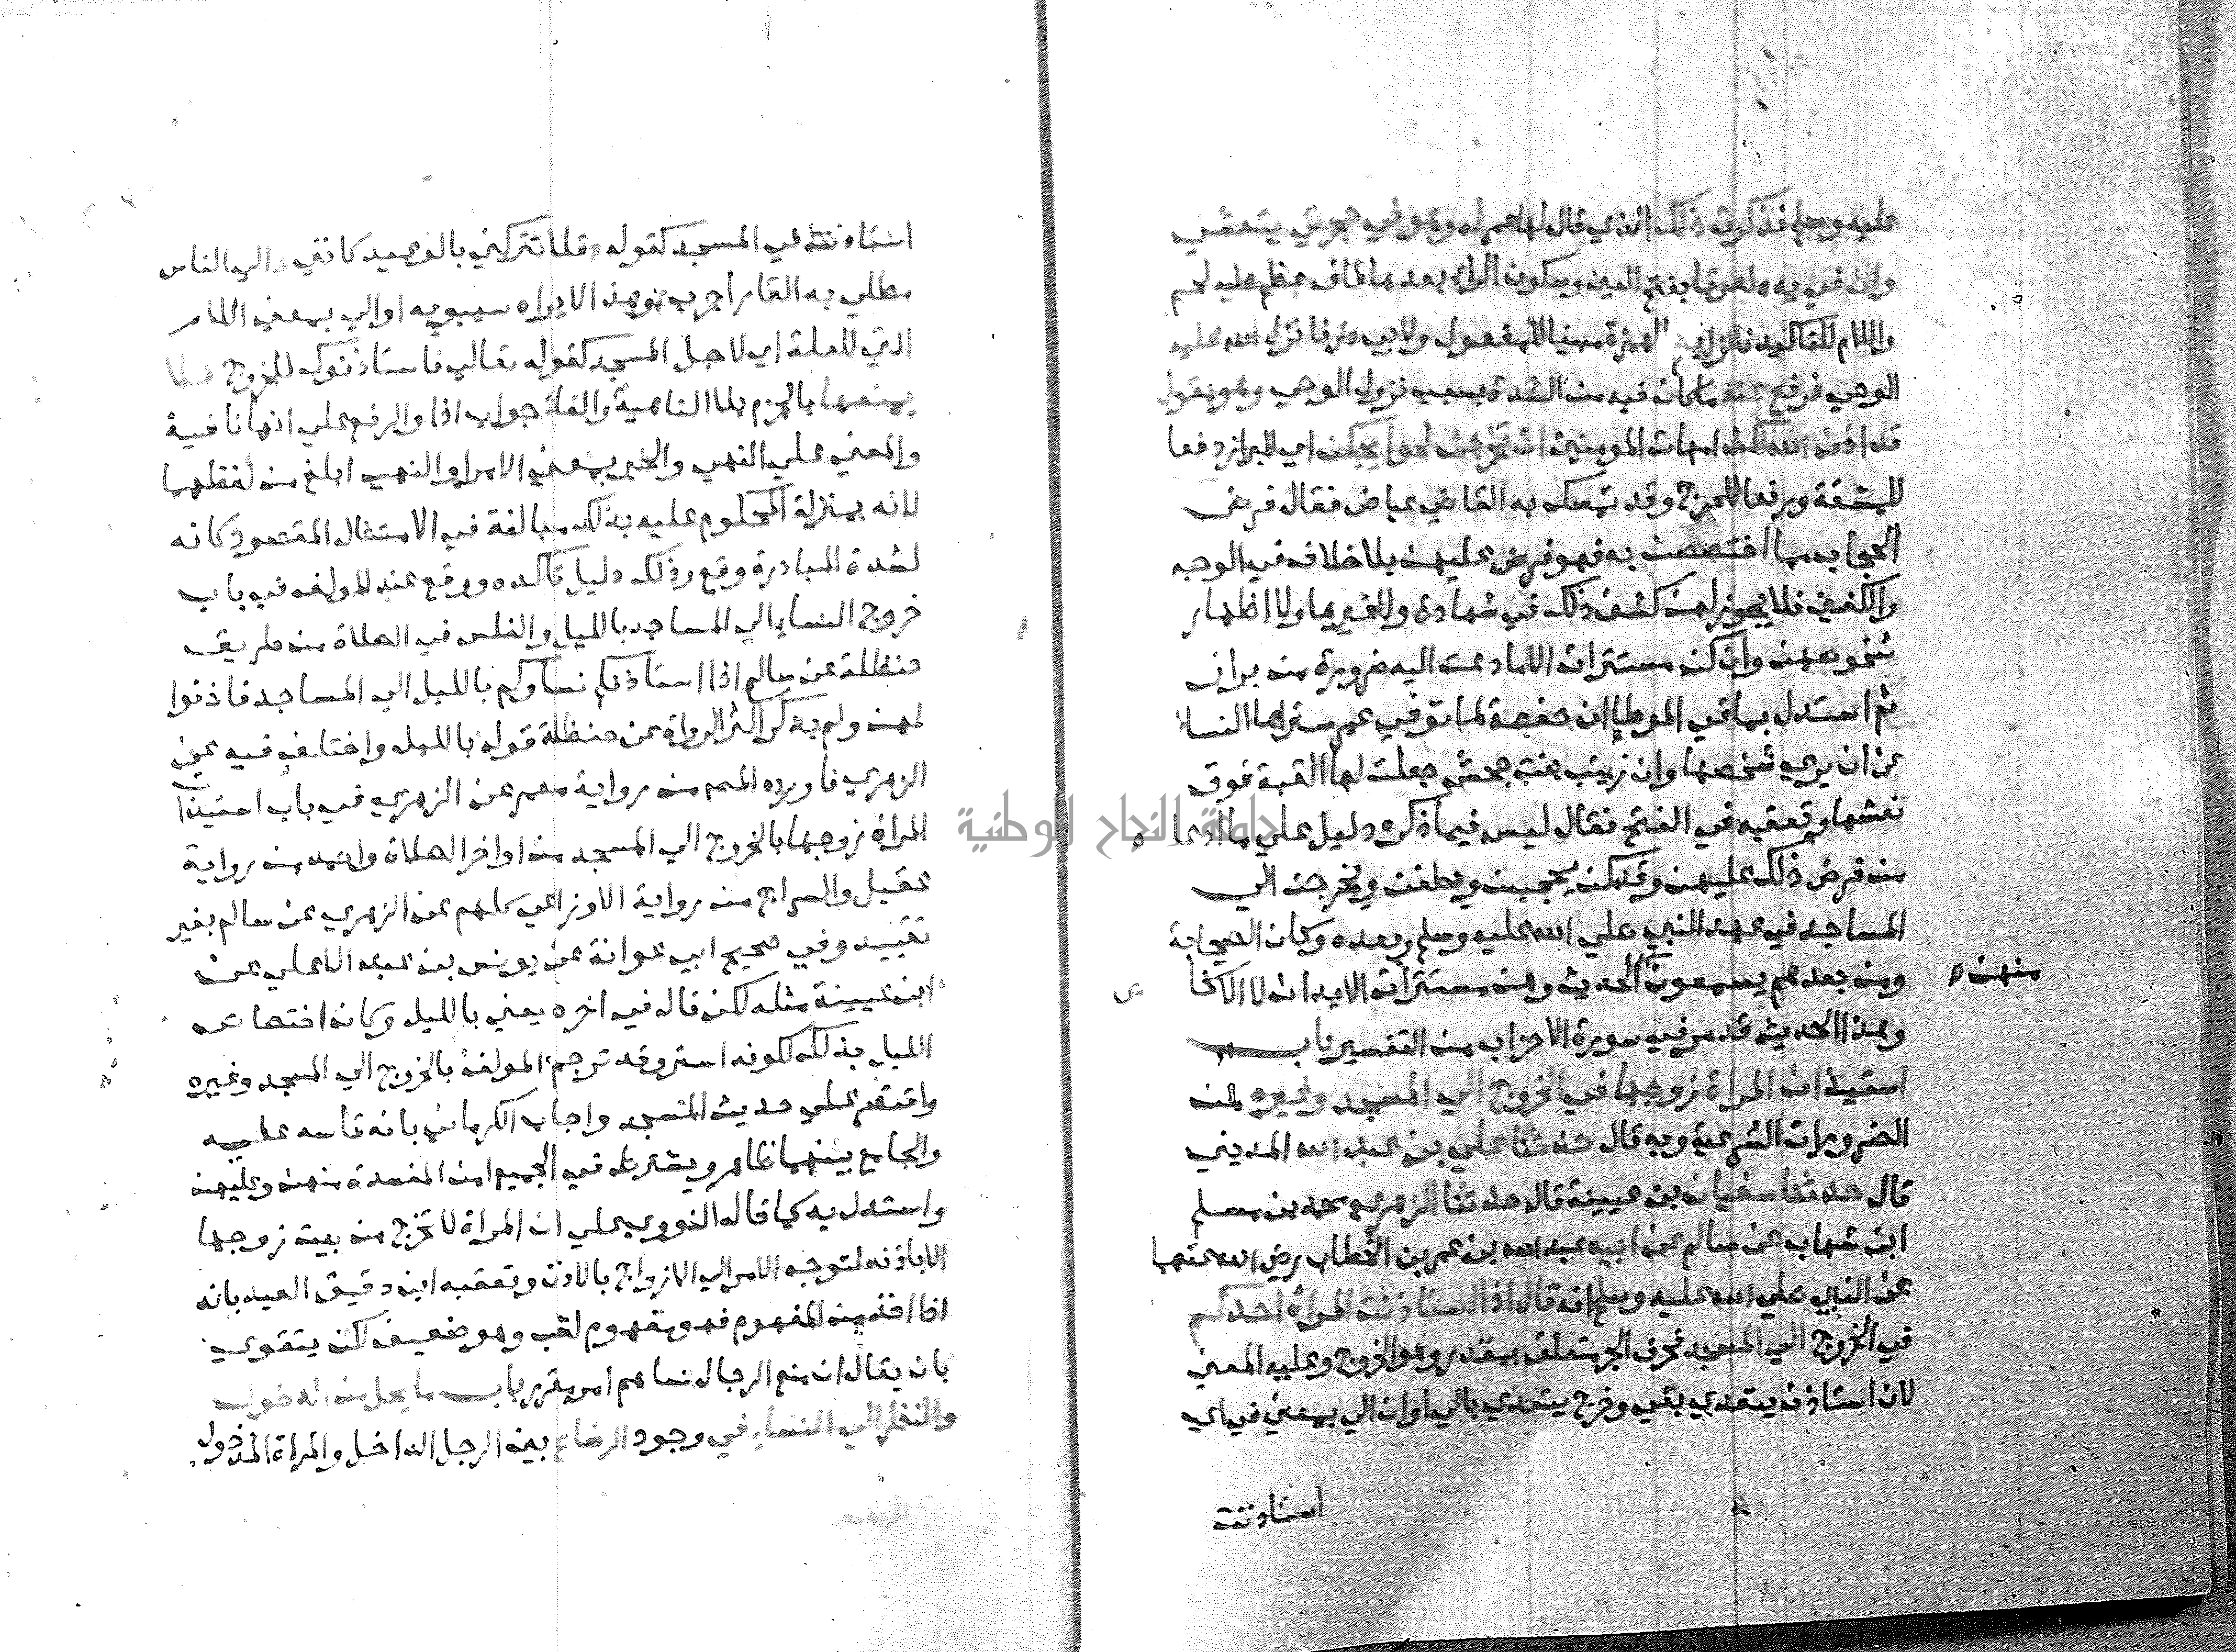 عليه وسلم فذكرت ذلك الذي قال لها عمر له وهو في حجرتي يتعشى
وان في يده لعرقا بفتح العين وسكون الراء بعدها قاف عظم عليه لحم
واللام للتاكيد فانزل بضم الهمزة مبنيا للمفعول ولابي ذر فانزل الله عليه
الوحي فرفع عنه ما كان فيه من الشدة بسبب نزول الوحي وهو يقول
قد اذن الله لكن امهات المومنين ان تخرجن لحوايجكن اي للبراز دفعا
للمشقة ورفعا للحرج وقد تمسك به القاضي عياض فقال فرض
الحجاب مما اختصصن به فهو فرض عليهن بلا خلاف في الوجه
والكفين فلا يجوز لهن كشف ذلك في شهادة ولا غيرها ولا اظهار
شخوصهن وان كن مستترات الا ما دعت اليه ضرورة من براز
ثم استدل بما في الموطا ان حفصة لما توفي عمر سترها النساء
عن ان يرى شخصها وان زينب بنت جحش جعلت لها القبة فوق
نعشها وتعقبه في الفتح فقال ليس فيما ذكره دليل على ما ادعاه
من فرض ذلك عليهن وقد كن يحججن ويطفن ويخرجن الي
المساجد في عهد النبي صلي الله عليه وسلم وبعده وكان الصحابة
ومن بعدهم يسمعون الحديث وهن مستترات الابدان لا الاشخاص
منهن ه
وهذا الحديث قد مر في سورة الاحزاب من التفسير باب
استيذان المراة زوجها في الخروج الي المسجد وغيره من
الضرورات الشرعية وبه قال حدثنا علي بن عبد الله المديني
قال حدثنا سفيان بن عيينة قال حدثنا الزهري محمد بن مسلم
ابن شهاب عن سالم عن ابيه عبد الله بن عمر بن الخطاب رضي الله عنهما
عن النبي صلي الله عليه وسلم انه قال اذا استاذنت المراة احدكم
في الخروج الي المسجد فحرف الجر متعلق بمقدر وهو الخروج وعليه المعنى
لان استاذن يتعدي بفي وخرج يتعدي بالي او ان الي بمعني في اي
استاذنت
استاذنت في المسجد كقوله فلا تتركني بالوعيد كانني الي الناس
مطلي به القار اجرب وهذا لا يراه سيبويه او الي بمعني اللام
التي للعلة اي لاجل المسجد كقوله تعالي فاستاذنوك للخروج فلا
يمنعها بالجزم بلا الناهية والفاء جواب اذا والرفع علي انها نافية
والمعني علي النهي والخبر بمعني الامر او النهي ابلغ من لفظهما
لانه بمنزلة المحكوم عليه بذلك مبالغة في الامتثال المقصود كانه
لشدة المبادرة وقع وذلك دليل تاكده ووقع عند المولف في باب
خروج النساء الي المساجد بالليل والغلس في الصلاة من طريق
حنظلة عن سالم اذا استاذنكم نساوكم بالليل الي المساجد فاذنوا
لهن ولم يذكر اكثر الرواة عن حنظلة قوله بالليل واختلف فيه عن
الزهري فاورده المص من رواية معمر عن الزهري في باب استيذان
المراة زوجها بالخروج الي المسجد من اواخر الصلاة واحمد من رواية
عقيل والسراج من رواية الاوزاعي كلهم عن الزهري عن سالم بغير
تقييد وفي صحيح ابي عوانة عن يونس بن عبد الاعلي عن
ابن عيينة مثله لكن قال في اخره يعني بالليل وكان اختصاص
الليل بذلك لكونه استر وقد ترجم المولف بالخروج الي المسجد وغيره
واقتصر علي حديث المسجد واجاب الكرماني بانه قاسه عليه
والجامع بينهما ظاهر ويشترط في الجميع امن المفسدة منهن وعليهن
واستدل به كما قال النووي علي ان المراة لا تخرج من بيت زوجها
الا باذنه لتوجه الامر الي الازواج بالاذن وتعقبه ابن دقيق العيد بانه
اذا اخذ من المفهوم فهو مفهوم لقب وهو ضعيف لكن يتقوي
بان يقال ان منع الرجال نساهم امر مقرر باب ما يحل من الدخول
والنظر الي النساء في وجود الرضاع بين الرجل الداخل والمراة المدخول